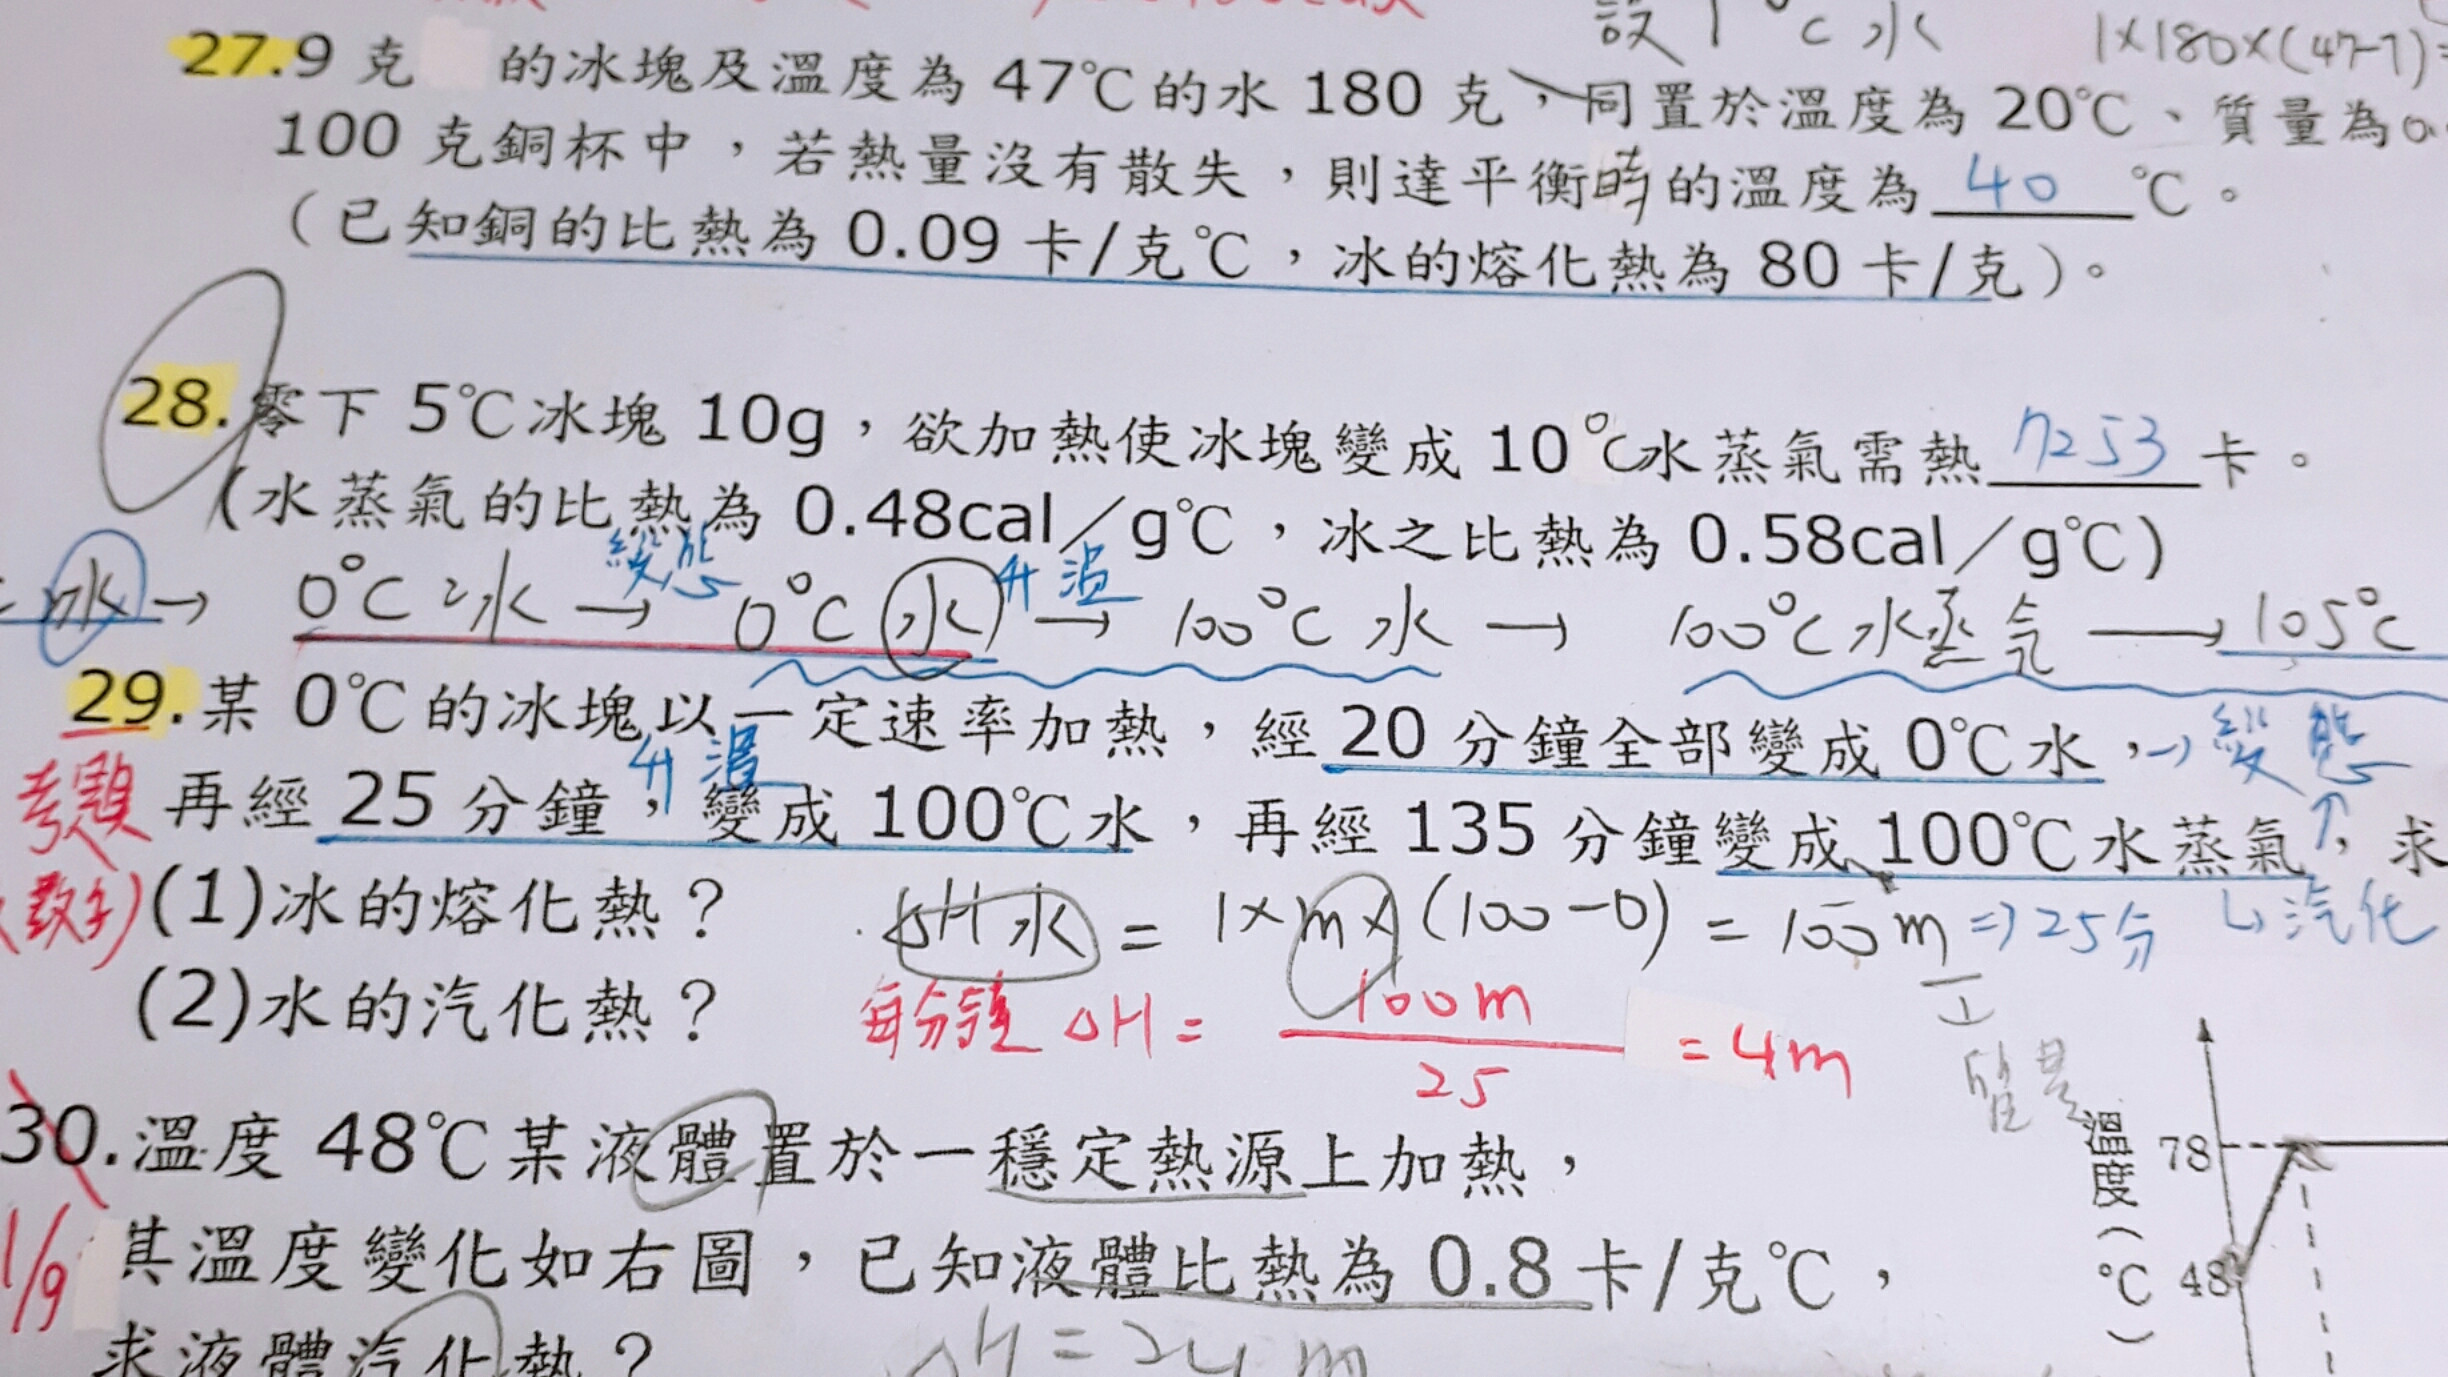 設 T °C 水
1×180×(47-T)=
27.9 克 的冰塊及溫度為 47℃的水 180 克、同置於溫度為 20℃、質量為
100 克銅杯中，若熱量沒有散失，則達平衡時的溫度為 40 ℃。
（已知銅的比熱為 0.09 卡/克℃，冰的熔化熱為 80 卡/克）。
28.零下 5℃冰塊 10g，欲加熱使冰塊變成 10 ℃水蒸氣需熱 7253 卡。
(水蒸氣的比熱為 0.48cal／g℃，冰之比熱為 0.58cal／g℃)
變態 升溫
冰 → 0°C 冰 → 0°C 水 → 100°C 水 → 100°C 水蒸气 → 105°C
29.某 0℃的冰塊以一定速率加熱，經 20 分鐘全部變成 0℃水，→ 變態
升溫
考題 再經 25 分鐘，變成 100℃水，再經 135 分鐘變成 100℃水蒸氣↑，求
數字) (1)冰的熔化熱？ ΔH水 = 1×m×(100-0) = 100m ⇒25分 ↳汽化
(2)水的汽化熱？ 每分鐘 ΔH = 100m
25
= 4m
質量
30.溫度 48℃某液體置於一穩定熱源上加熱，
1/9 其溫度變化如右圖，已知液體比熱為 0.8 卡/克℃，
求液體汽化熱？ ΔH = 24m
溫度(℃)
78
48